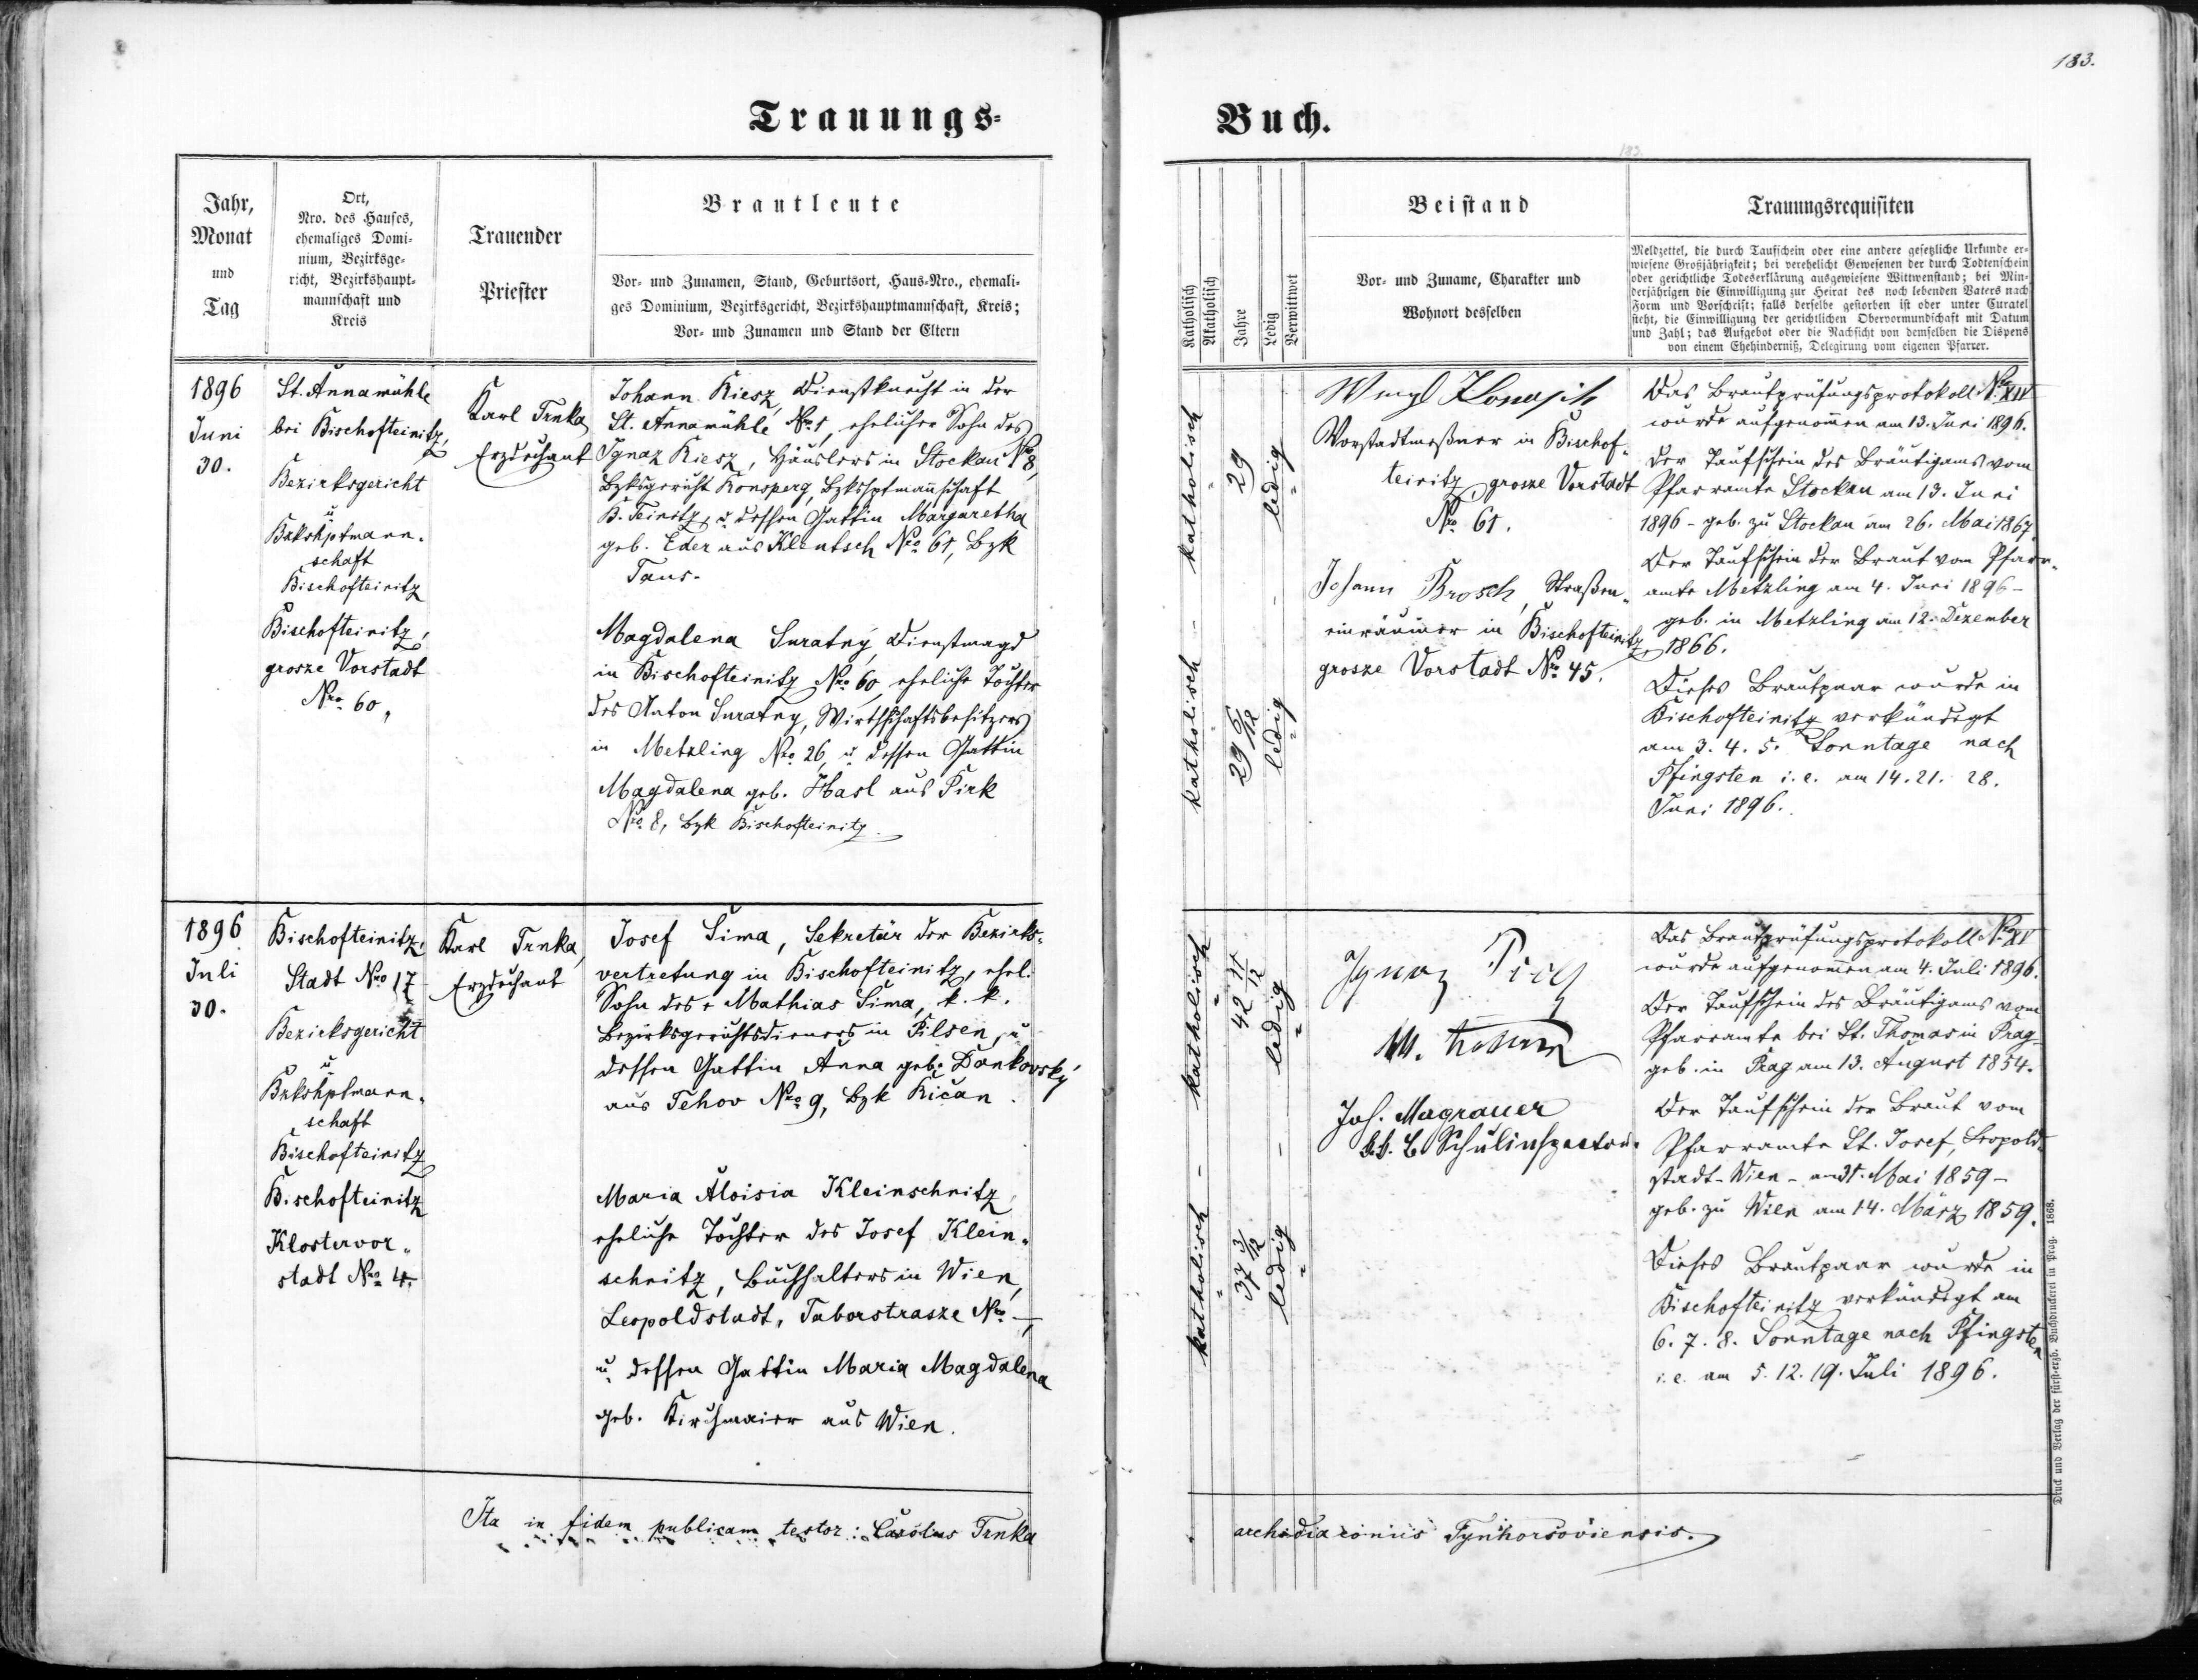 Trauungs=
Jahr,
Monat
und
Tag
Ort,
Nro. des Hauses,
ehemaliges Domi-
nium, Bezirksge-
richt, Bezirkshaupt-
mannschaft und
Kreis
Trauender
Priester
Brautleute
Vor- und Zunamen, Stand, Geburtsort, Haus-Nro., ehemali-
ges Dominium, Bezirksgericht, Bezirkshauptmannschaft, Kreis;
Vor- und Zunamen und Stand der Eltern
1896
Juni
30.
St. Annamühle
bei Bischofteinitz,
Bezirksgericht
u
Bzkshptmann-
schaft
Bischofteinitz
Bischofteinitz,
grosze Vorstadt
Nro 60,
Karl Trnka,
Erzdechant
Johann Riesz, Dienstknecht in der
St. Annamühle No 1, ehelicher Sohn des
Ignaz Riesz, Häuslers in Stockau No 8,
Bzksgericht Ronsperg, Bzkshptmannschaft
B. Teinitz, u dessen Gattin Margaretha
geb. Eder aus Klentsch Nro 61, Bzk
Taus.
Magdalena Suratny, Dienstmagd
in Bischofteinitz Nro 60, eheliche Tochter
des Anton Suratny, Wirthschaftsbesitzers
in Metzling Nro 26, u dessen Gattin
Magdalena geb. Hasl aus Pirk
Nro 8, Bzk Bischofteinitz.
1896
Juli
30.
Bischofteinitz,
Stadt Nro 17
Bezirksgericht
u
Bzkshptmann-
schaft
Bischofteinitz
Bischofteinitz
Klostervor-
stadt Nro 4.
Karl Trnka,
Erzdechant
Josef Sima, Sekretär der Bezirks-
vertretung in Bischofteinitz, ehel.
Sohn des + Mathias Sima, k. k.
Bezirksgerichtsdieners in Pilsen, u
dessen Gattin Anna geb. Dankovský
aus Tehov Nro 9, Bzk Ričan.
Maria Aloisia Kleinschnitz,
eheliche Tochter des Josef Klein-
schnitz, Buchhalters in Wien,
Leopoldstadt, Taborstrasze No —,
u dessen Gattin Maria Magdalena
geb. Kirchmaier aus Wien.
Ita in fidem publicam testor: Carolus Trnka
183.
Buch.
182.
Katholisch
Akatholisch
Jahre
Ledig
Verwittwet
Beistand
Vor- und Zuname, Charakter und
Wohnort desselben
Trauungsrequisiten
Meldzettel, die durch Taufschein oder eine andere gesetzliche Urkunde er-
wiesene Großjährigkeit; bei verehelicht Gewesenen der durch Todtenschein
oder gerichtliche Todeserklärung ausgewiesene Wittwenstand; bei Min-
derjährigen die Einwilligung zur Heirat des noch lebenden Vaters nach
Form und Vorschrift; falls derselbe gestorben ist oder unter Curatel
steht, die Einwilligung der gerichtlichen Obervormundschaft mit Datum
und Zahl; das Aufgebot oder die Nachsicht von demselben die Dispens
von einem Ehehinderniß, Delegirung vom eigenen Pfarrer.
katholisch - katholisch
29 6/12 - 29
ledig - ledig
Vorstadtmeßner in Bischof-
teinitz grosze Vorstadt
No 61.
Johann Brosch, Straßen-
einräumer in Bischofteinitz,
grosze Vorstadt No 45.
Das Brautprüfungsprotokoll No XIV
wurde aufgenommen am 13. Juni 1896.
Der Taufschein des Bräutigams vom
Pfarramte Stockau am 13. Juni
1896 - geb. zu Stockau am 26. Mai 1867.
Der Taufschein der Braut vom Pfarr-
amte Metzling am 4. Juni 1896 -
geb. in Metzling am 12. Dezember
1866.
Dieses Brautpaar wurde in
Bischofteinitz verkündigt
am 3. 4. 5. Sonntage nach
Pfingsten i. e. am 14. 21. 28.
Juni 1896.
katholisch - katholisch
37 3/12 42 11/12
ledig - ledig
Ignaz
M.
Joh. Magrauer
k. k. B Schulinspector.
Das Brautprüfungsprotokoll No XV
wurde aufgenommen am 4. Juli 1896.
Der Taufschein des Bräutigams vom
Pfarramte bei St. Thomas in Prag -
geb. in Prag am 13. August 1854.
Der Taufschein der Braut vom
Pfarramte St. Josef, Leopold-
stadt - Wien - am 31. Mai 1859 -
geb. zu Wien am 14. März 1859.
Dieses Brautpaar wurde in
Bischofteinitz verkündigt am
6. 7. 8. Sonntage nach Pfingsten
i. e. am 5. 12. 19. Juli 1896.
archidiaconus Tynhorsoviensis.
Druck und Verlag der fürst-erzb. Buchdruckerei in Prag. 1868.